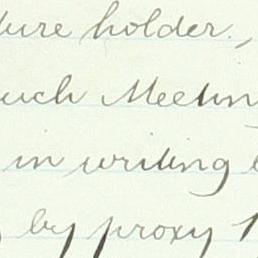 ture holder,
uch Meeting
in writing
by proxy